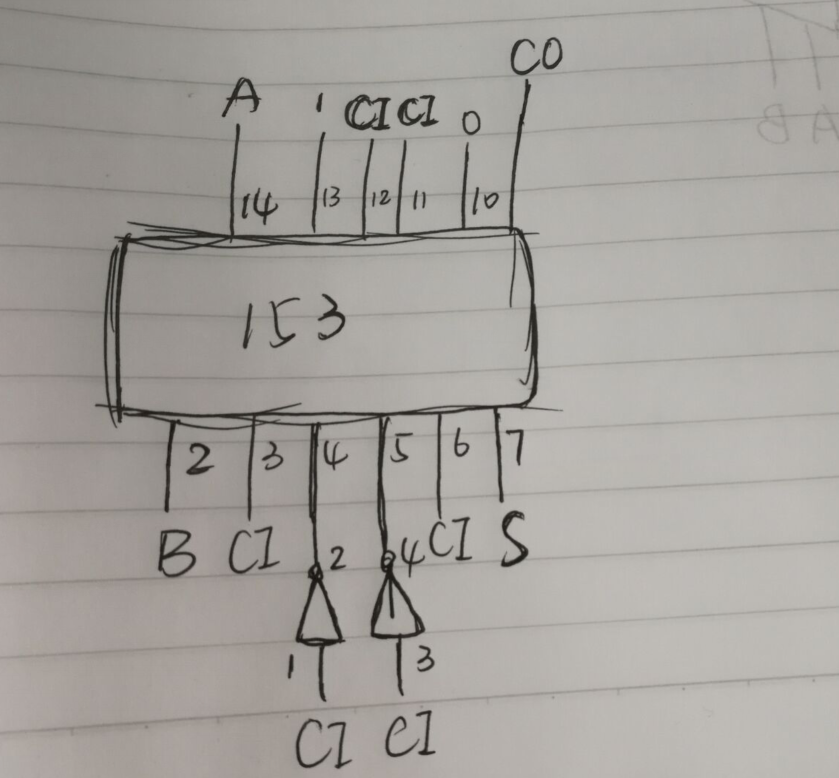 CO
A 1 CI CI 0
14 13 12 11 10
153
2 3 4 5 6 7
B CI 2 4 CI S
1 3
CI CI